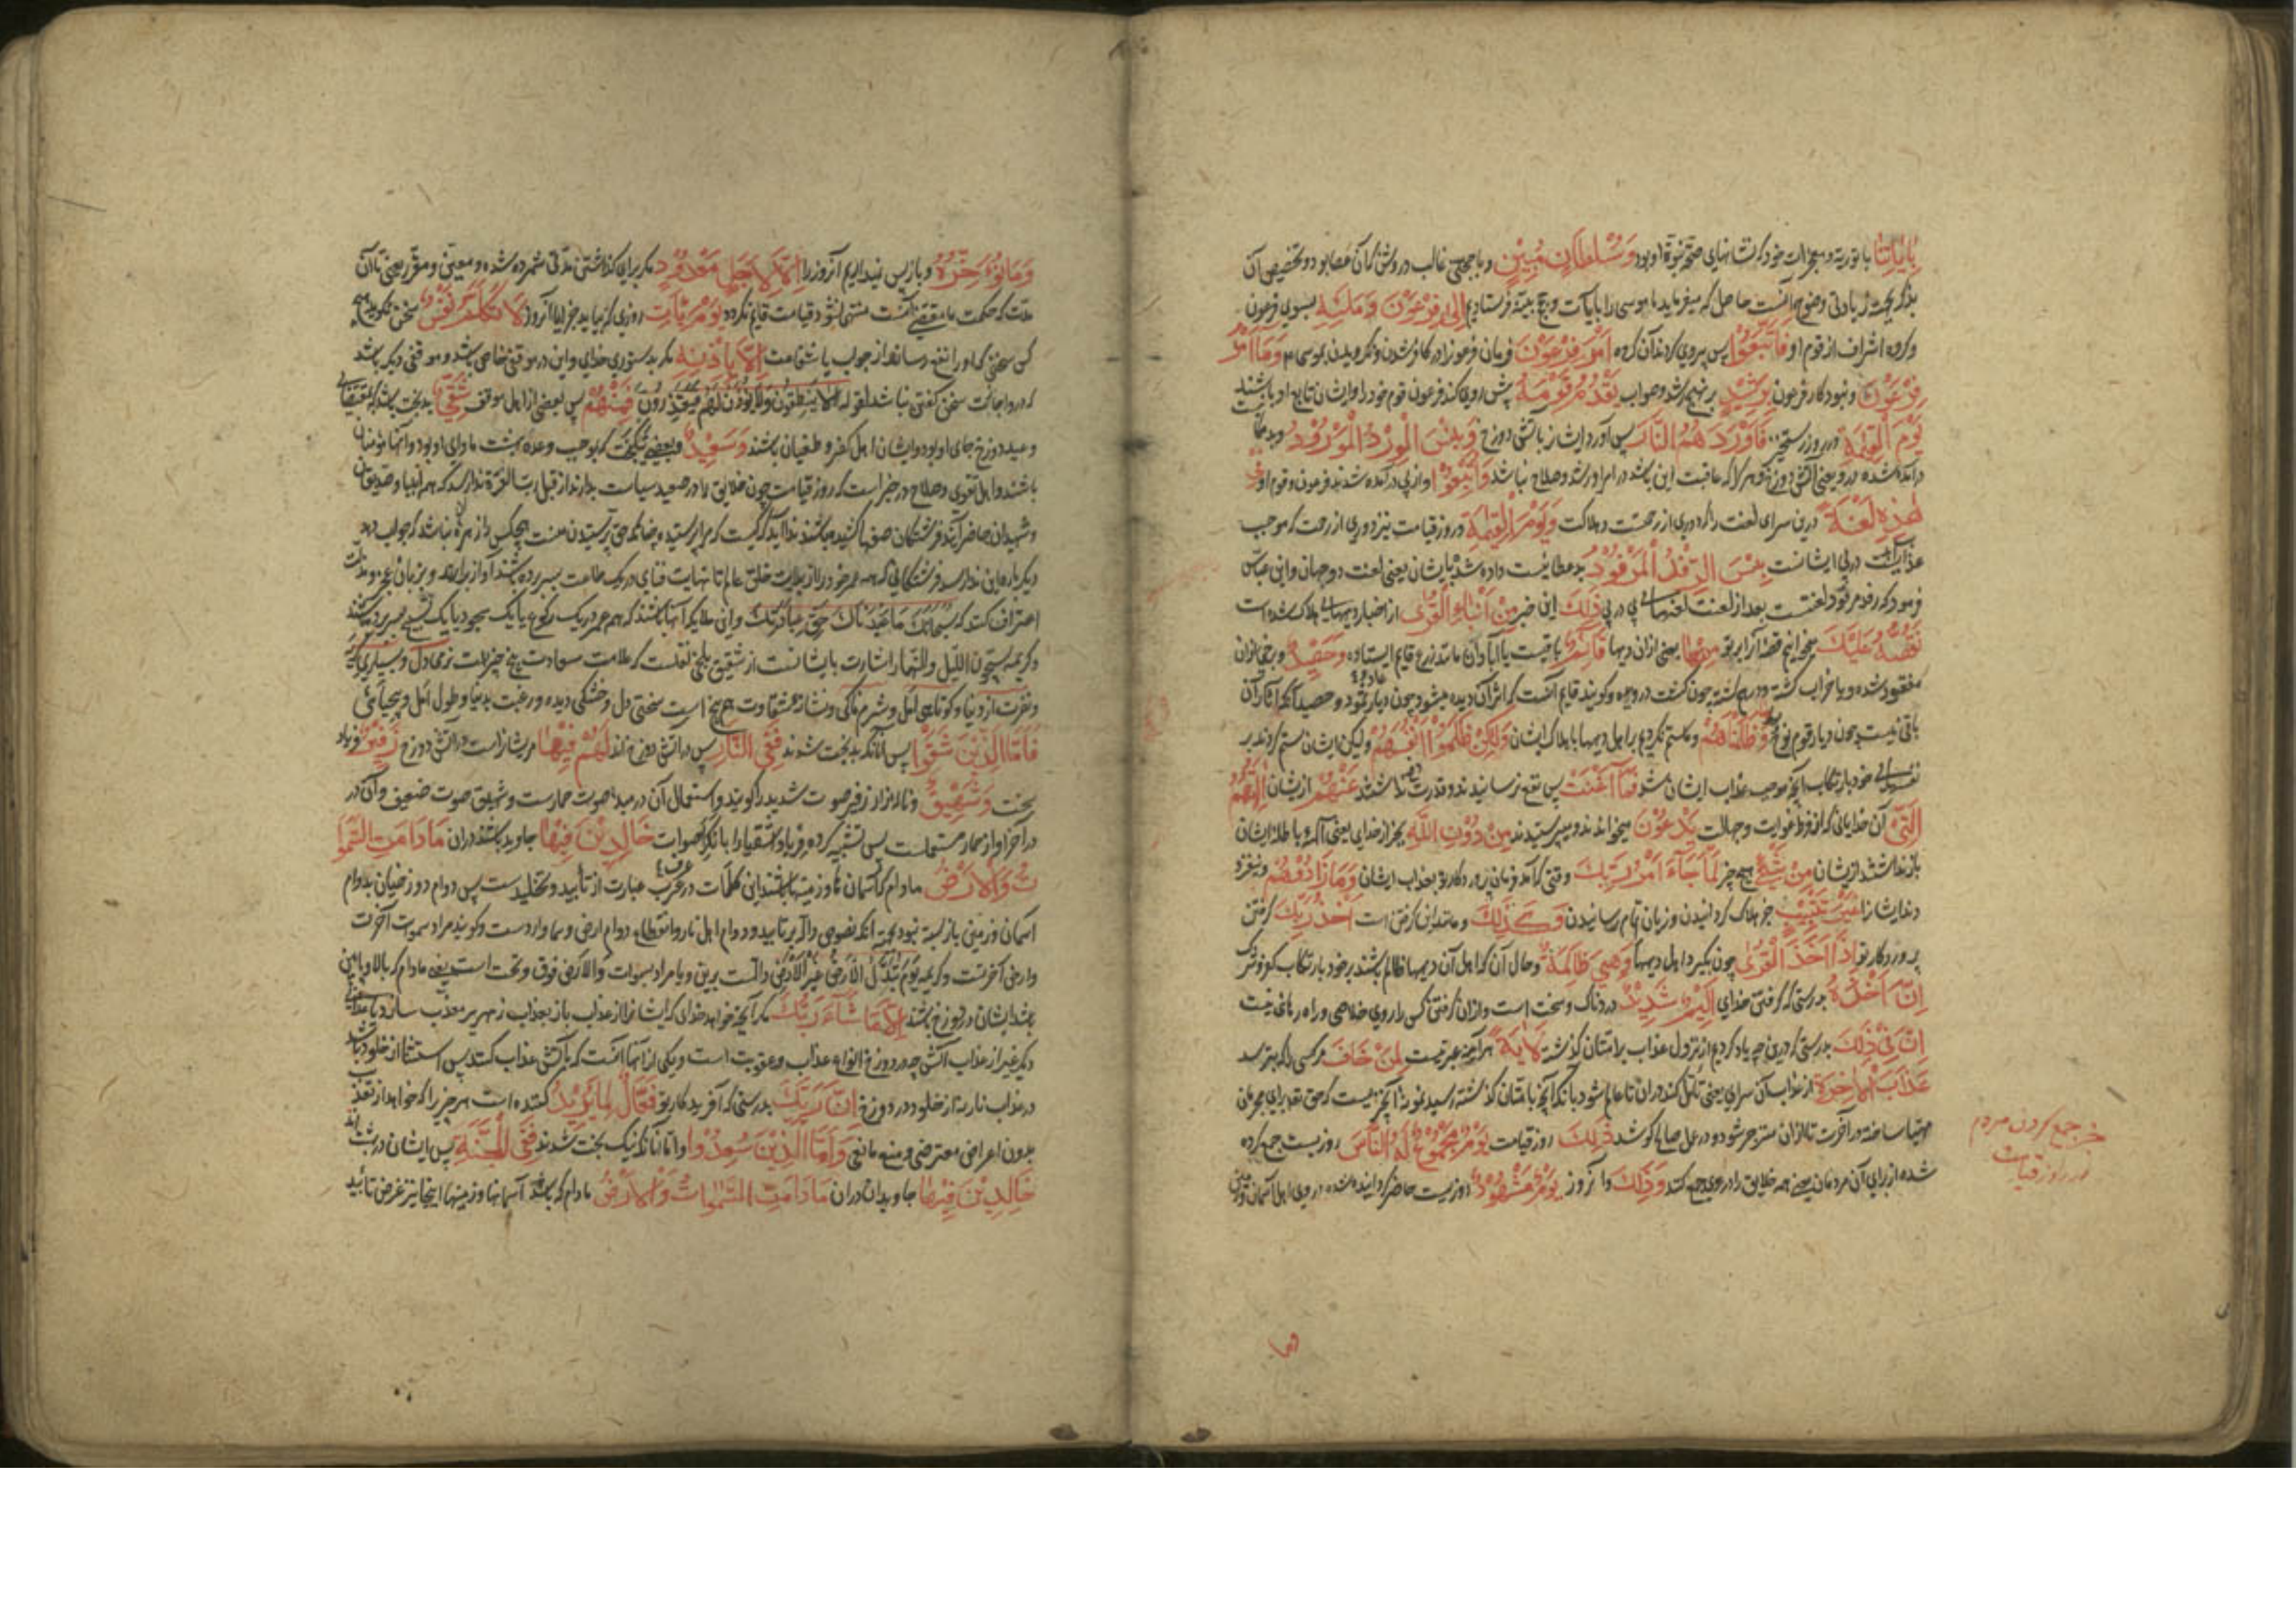 بِاٰيَاتِنَا با توریة و معجزات خود که نشانهای صحّة نبوّة او بود وَسُلْطَانٍ مُبِيْنٍ و با حجتی غالب و روشن که آن عصا بود و تخصیص آن
بذکر بجهت زیادتی وضوح آنست حاصل که میفرماید ما موسی را بآیات و حجج بینه فرستادیم اِلٰى فِرْعَوْنَ وَمَلَئِهٖ بسوی فرعون
و گروه اشراف از قوم او فَاتَّبَعُوْا پس پیروی کردند آن گروه اَمْرَ فِرْعَوْنَ فرمان فرعون را در کافر شدن و نگرویدن بموسی ۴ وَمَا اَمْرُ
فِرْعَوْنَ و نبود کار فرعون بِرَشِيْدٍ بر نهج رشد و صواب يَقْدُمُ قَوْمَهُ پیش روی کند فرعون قوم خود را و ایشان تابع او باشند
يَوْمَ الْقِيٰمَةِ در روز رستخیز فَاَوْرَدَهُمُ النَّارَ پس آورد ایشان را بآتش دوزخ وَبِئْسَ الْوِرْدُ الْمَوْرُوْدُ و بد جائیست
درآمده شده درو یعنی آتش دوزخ و هر کرا که عاقبت این باشد در امر او رشد و صلاح نباشد وَاُتْبِعُوْا و از پی درآمده شدند فرعون و قوم او فِيْ
هٰذِهٖ لَعْنَةً درین سرای لعنت را که دوری از رحمتست و هلاکت وَيَوْمَ الْقِيٰمَةِ و در روز قیامت نیز دوری از رحمت که موجب
عذاب است در پی ایشانست بِئْسَ الرِّفْدُ الْمَرْفُوْدُ بد عطائیست داده شده بایشان یعنی لعنت دو جهان و ابن عباس
فرمود که رفد مرفود لعنتست بعد از لعنت لعنهای پی در پی ذٰلِكَ این خبر مِنْ اَنْبَاءِ الْقُرٰى از اخبار دیههای هلاک شده است
نَقُصُّهُ عَلَيْكَ میخوانیم قصهٔ آنرا بر تو مِنْهَا بعضی ازان دیهها قَائِمٌ باقیست یا آبادان مانند زرع قایم ایستاده وَحَصِيْدٌ و بعضی ازان
مفقود شده و یا خراب گشته و درهم شکسته چون کشت دروده و گویند قایم آنست که اثر آن دیده میشود چون دیار عاد و ثمود و حصید آنکه آثار آن
باقی نیست چون دیار قوم نوح وَمَا ظَلَمْنَاهُمْ و ما ستم نکردیم بر اهل دیهها باهلاک ایشان وَلٰكِنْ ظَلَمُوْا اَنْفُسَهُمْ و لیکن ایشان ستم کردند بر
نفسهای خود بارتکاب آنچه موجب عذاب ایشان شد فَمَا اَغْنَتْ پس نفع نرسانیدند و قدرت دفع نداشتند عَنْهُمْ از ایشان اٰلِهَتُهُمُ
الَّتِيْ آن خدایانی که از فرط غوایت و جهالت يَدْعُوْنَ میخواندند و میپرستیدند مِنْ دُوْنِ اللّٰهِ بجز از خدای یعنی آلههٔ باطله ایشان
بازنداشتند از ایشان مِنْ شَيْءٍ هیچ چیز لَمَّا جَاءَ اَمْرُ رَبِّكَ وقتی که آمد فرمان پروردکار تو بعذاب ایشان وَمَا زَادُوْهُمْ و نیفزو
دند ایشانرا غَيْرَ تَتْبِيْبٍ جز هلاک گردانیدن و زیان تمام رسانیدن وَكَذٰلِكَ و مانند این گرفتن است اَخْذُ رَبِّكَ گرفتن
پروردکار تو اِذَا اَخَذَ الْقُرٰى چون بگیرد اهل دیهها وَهِيَ ظَالِمَةٌ و حال آن که اهل آن دیهها ظالم باشند بر خود بارتکاب کفر و شرک
اِنَّ اَخْذَهٗ بدرستی که گرفتن خدای اَلِيْمٌ شَدِيْدٌ دردناک و سخت است و ازان گرفتن کس را روی خلاصی و راه رهائی نیست
اِنَّ فِيْ ذٰلِكَ بدرستی که درین چه یاد کردیم از نزول عذاب بر امتان گذشته لَاٰيَةً هرآینه عبرتیست لِمَنْ خَافَ مر کسی را که بترسد
عَذَابَ الْاٰخِرَةِ از عذاب آن سرای یعنی تأمل کند دران تا عالم شود بآنکه آنچه بامتان گذشته رسید نمونهٔ آن چیزیست که حق تعه برای مجرمان
مهیا ساخته در آخرت تا ازان منزجر شود و در عمل صالح کوشد ذٰلِكَ روز قیامت يَوْمٌ مَجْمُوْعٌ لَهُ النَّاسُ روزیست جمع کرده
شده از برای آن مردمان یعنی همه خلایق را در وی جمع کنند وَذٰلِكَ و آن روز يَوْمٌ مَشْهُوْدٌ روزیست حاضر گردانیده شده در وی اهل آسمان و زمین
خبر جمع کردن مردم
در روز قیامت
وَمَا نُؤَخِّرُهٗ و باز پس نیندازیم آن روز را اِلَّا لِاَجَلٍ مَعْدُوْدٍ مگر برای گذاشتن مدتی شمرده شده و معین و مقرر یعنی تا آن
مدت که حکمت ما مقتضی آنست منتهی نشود قیامت قایم نگردد يَوْمَ يَأْتِ روزی که بیاید جزا یا آن روز لَا تَكَلَّمُ نَفْسٌ سخن نگوید هیچ
کس سخنی که او را نفع رساند از جواب یا شفاعت اِلَّا بِاِذْنِهٖ مگر بدستوری خدای و این در موقفی خاص باشد و موقفی دیگر باشد
که در و اجازت سخن گفتن نباشد لقوله هذا یوم لا ینطقون ولا یؤذن لهم فیعتذرون فَمِنْهُمْ پس بعضی از اهل موقف شَقِيٌّ بدبخت باشد که بمقتضای
وعید دوزخ جای او بود و ایشان اهل کفر و طغیان باشند وَسَعِيْدٌ و بعضی نیکبخت که بموجب وعده بهشت مأوای او بود و آنها مؤمنان
باشند و اهل تقوی و صلاح در خبر است که روز قیامت چون خلایق را در صعید سیاست بدارند از قبل رب العزة ندا رسد که همه انبیا و صدیقان
و شهیدان حاضر آیند و فرشتگان صفها کشیده باشند ندا آید که کیست که مرا پرستیده چنانکه حق پرستیدن منست هیچکس را زهره نباشد که جواب دهد
اعتراف کند که سبحانک ما عبدناک حق عبادتک و این ملایکه آنها باشند که همه عمر در یک رکوع یا یک سجود یا یک تسبیح بسر برده باشند
فَاَمَّا الَّذِيْنَ شَقُوْا پس اما آنانکه بدبخت شدند فَفِي النَّارِ پس در آتش دوزخ اند لَهُمْ فِيْهَا مر ایشانراست در آتش دوزخ زَفِيْرٌ فریاد
سخت وَشَهِيْقٌ و ناله زار زفیر صوت شدید را گویند و استعمال آن در مبدا صوت حمارست و شهیق صوت ضعیف و آن در
در آخر آواز حمار مستعملست پس تشبیه کرده فریاد اشقیا را بانکر اصوات خَالِدِيْنَ فِيْهَا جاوید باشند دران مَا دَامَتِ السَّمٰوَا
تُ وَالْاَرْضُ مادام که آسمان و زمینها باشند این کلمات در عرف عرب عبارت از تأبید و تخلید است پس دوام دوزخیان بدوام
آسمان و زمین بازبسته نبود بجهة آنکه نصوص داله بر تأبید و دوام اهل نار و انقطاع دوام ارض و سما واردست و گویند مراد سموات آخرت
وارض آخرتست و کریمه یوم تبدل الارض غیر الارض دالست برین و یا مراد بسموات والارض فوق و تحت است یعنی مادام که بالا و پایین
باشد ایشان در دوزخ باشند اِلَّا مَا شَاءَ رَبُّكَ مگر آنچه خواهد خدای که ایشانرا از عذاب باز بعذاب زمهریر معذب سازد یا عذابی
دیگر غیر از عذاب آتش چه در دوزخ انواع عذاب و عقوبت است و یکی از آنها آنست که بآتش عذاب کنند پس استثنا از خلود باشد
در عذاب نار نه از خلود در دوزخ اِنَّ رَبَّكَ بدرستی که آفریدکار تو فَعَّالٌ لِمَا يُرِيْدُ کننده است هر چیز را که خواهد از تعذیب
بدون اعراض معترضی و منع مانعی وَاَمَّا الَّذِيْنَ سُعِدُوْا و اما آنانکه نیک بخت شدند فَفِي الْجَنَّةِ پس ایشان در بهشت اند
خَالِدِيْنَ فِيْهَا جاویدان دران مَا دَامَتِ السَّمٰوَاتُ وَالْاَرْضُ مادام که باشد آسمانها و زمینها اینجا نیز غرض تأبید